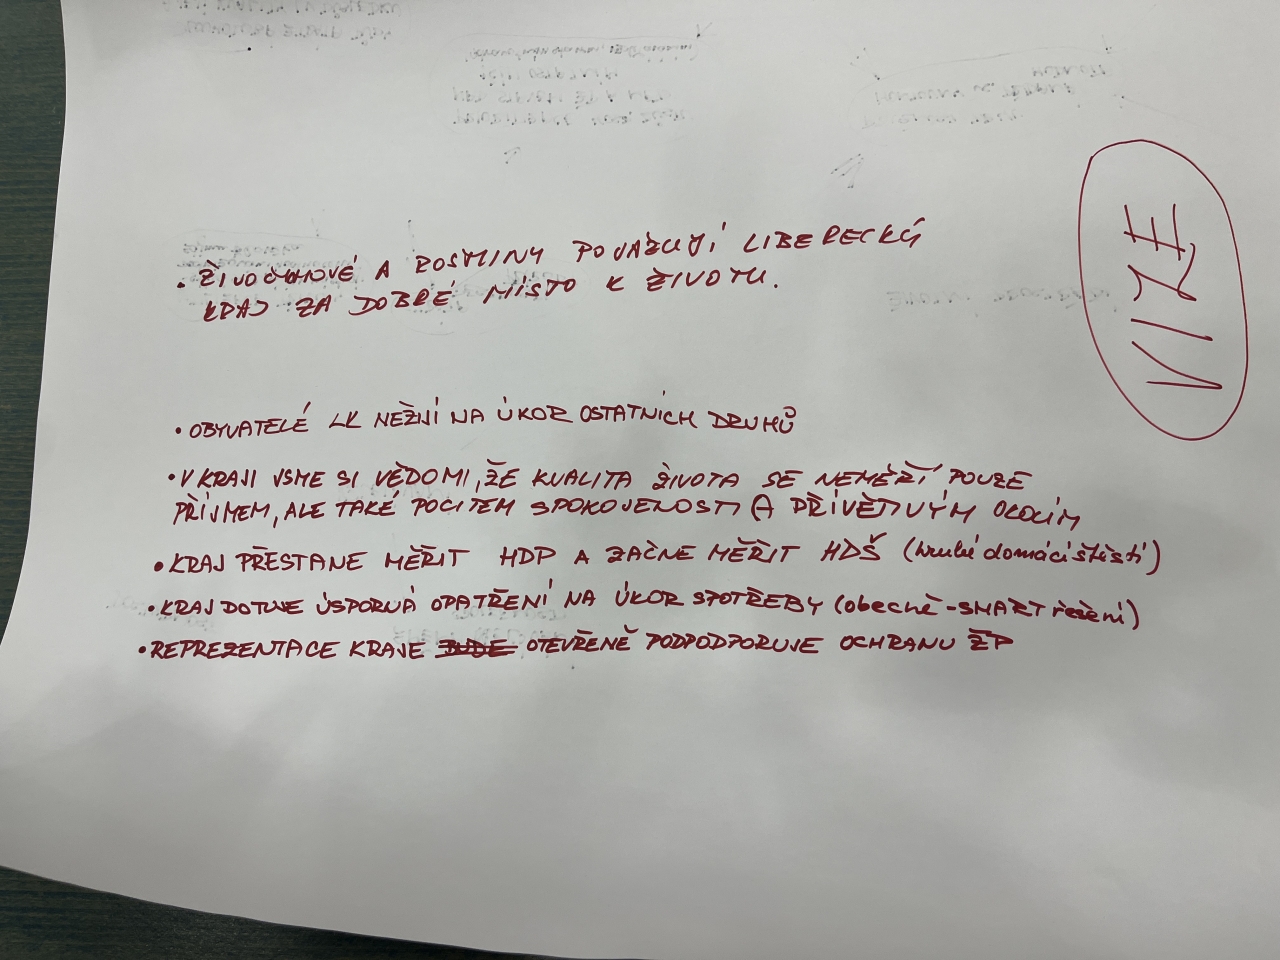 VIZE
• ŽIVOČICHOVÉ A ROSTLINY POVAŽUJÍ LIBERECKÝ
KRAJ ZA DOBRÉ MÍSTO K ŽIVOTU.
• OBYVATELÉ LK NEŽIJÍ NA ÚKOR OSTATNÍCH DRUHŮ
• V KRAJI JSME SI VĚDOMI, ŽE KVALITA ŽIVOTA SE NEMĚŘÍ POUZE
PŘÍJMEM, ALE TAKÉ POCITEM SPOKOJENOSTI A PŘÍVĚTIVÝM OKOLÍM
• KRAJ PŘESTANE MĚŘIT HDP A ZAČNE MĚŘIT HDŠ (hrubé domácí štěstí)
• KRAJ DOTUJE ÚSPORNÁ OPATŘENÍ NA ÚKOR SPOTŘEBY (obecně - SMART řešení)
• REPREZENTACE KRAJE BUDE OTEVŘENĚ PODPODPORUJE OCHRANU ŽP